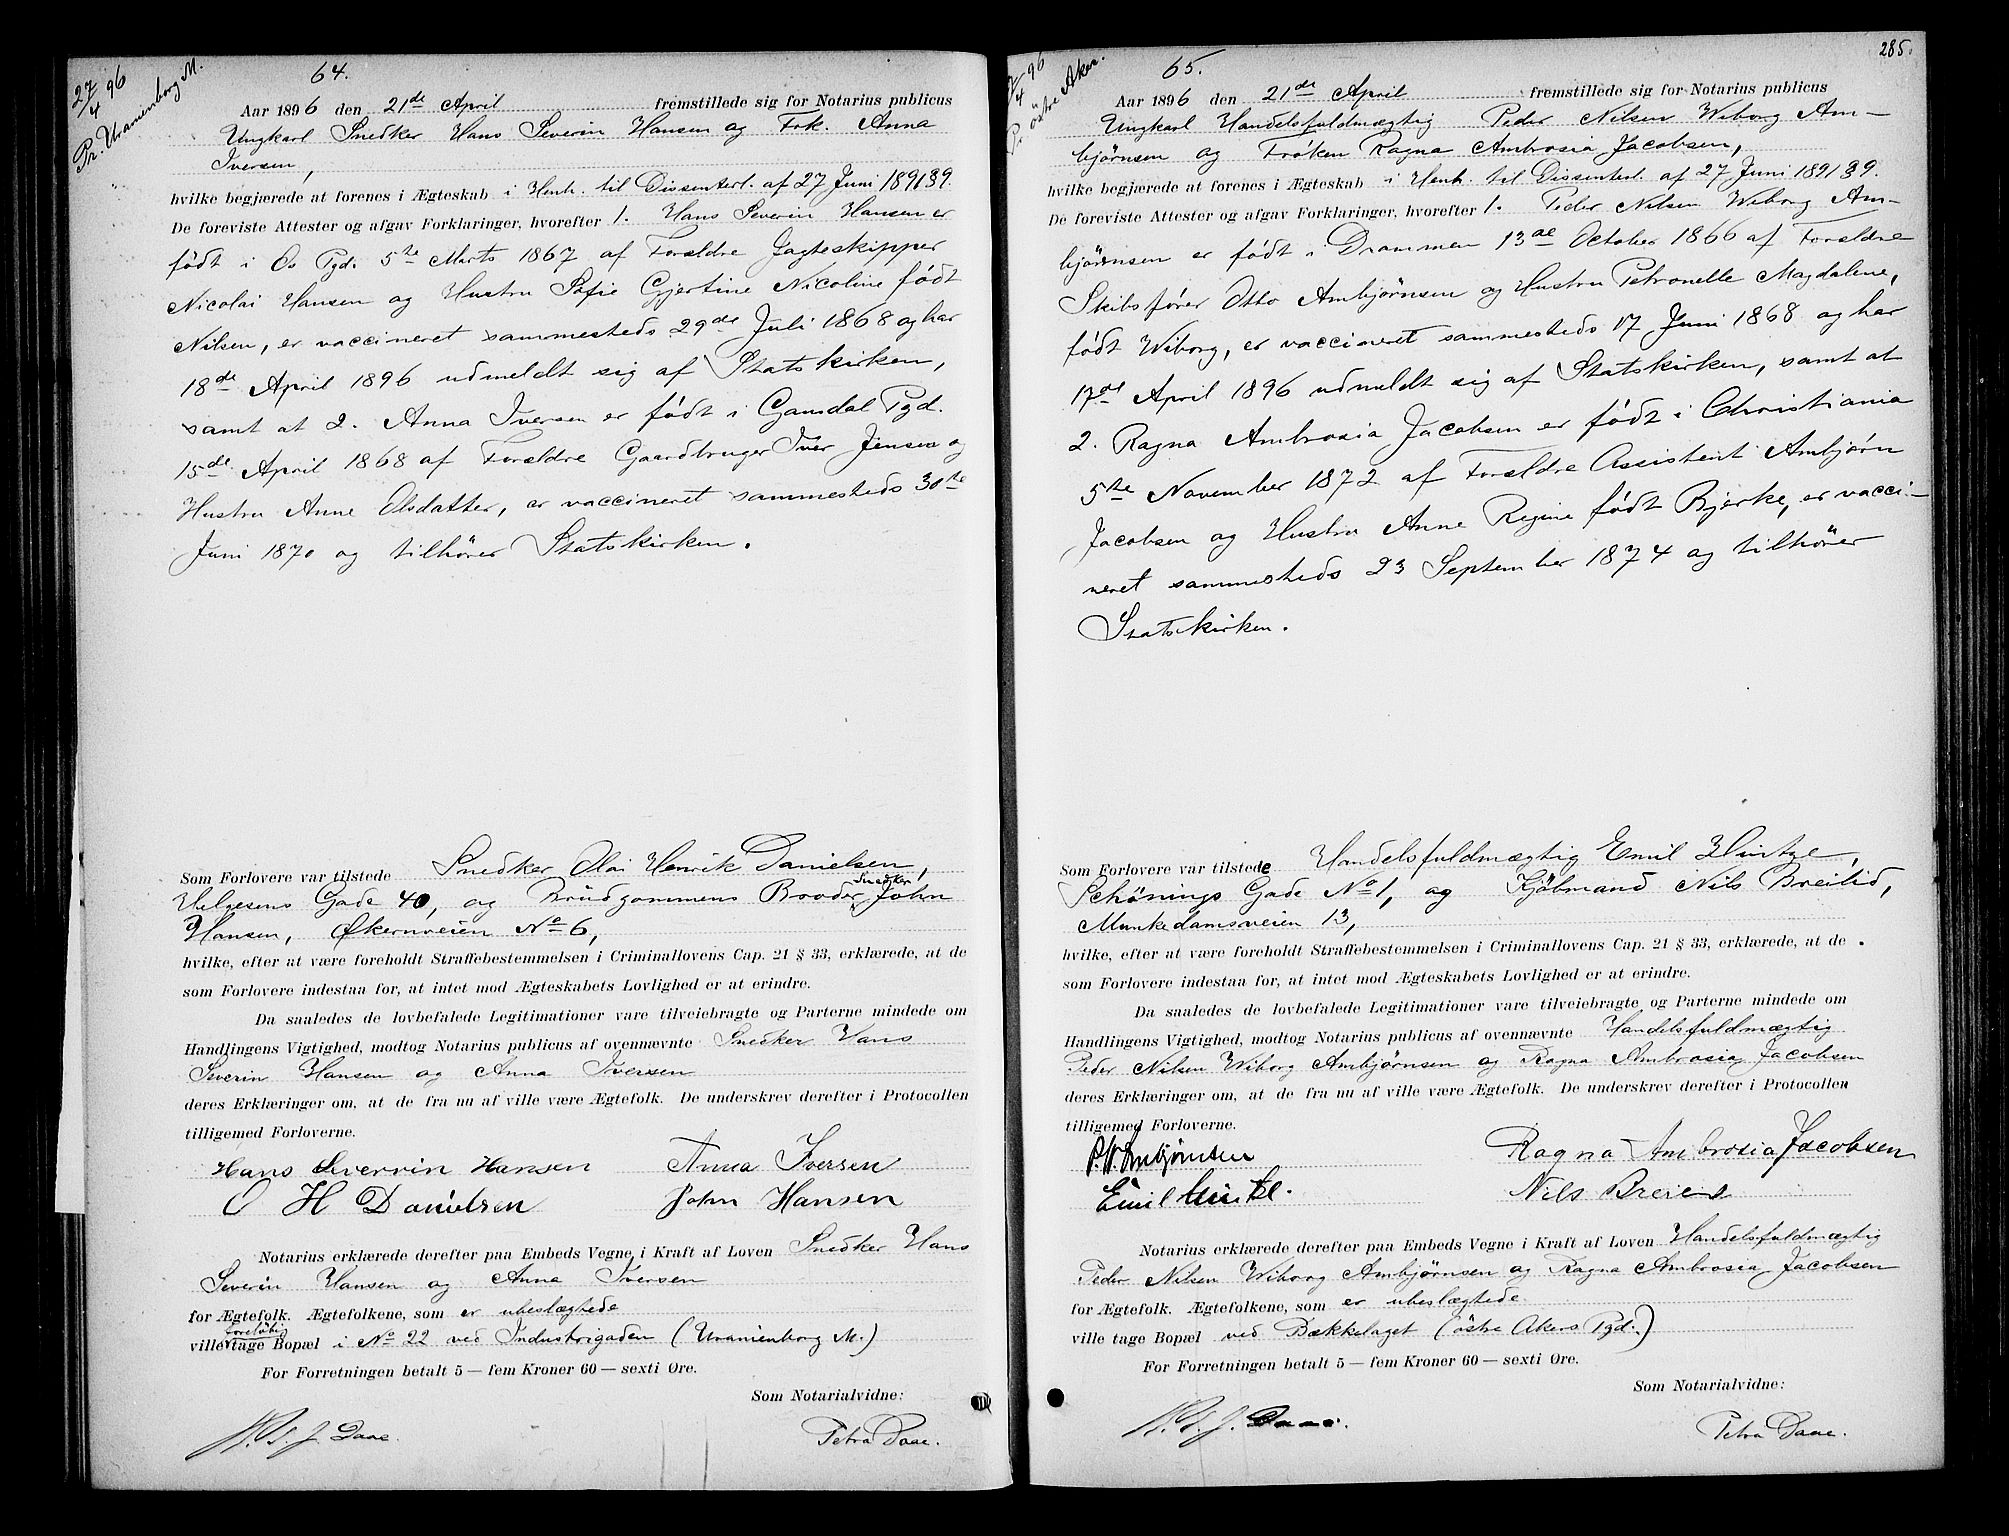 27/4 96
Pr. Uranienborg M.
64.
Aar 1896 den 21de April fremstillede sig for Notarius publicus
Ungkarl Snedker Hans Severin Hansen og Frk. Anna
Iversen,
hvilke begjærede at forenes i Ægteskab i Henh. til Dissenterl. af 27 Juni 1891 § 9.
De foreviste Attester og afgav Forklaringer, hvorefter 1. Hans Severin Hansen er
født i Os Pgd. 5te Marts 1867 af Forældre Jagteskipper
Nicolai Hansen og Hustru Sofie Gjertine Nicoline født
Nilsen, er vaccineret sammesteds 29de Juli 1868 og har
18de April 1896 udmeldt sig af Statskirken,
samt at 2. Anna Iversen er født i Gausdal Pgd.
15de April 1868 af Forældre Gaardbruger Iver Jensen og
Hustru Anne Olsdatter, er vaccineret sammesteds 30te
Juni 1870 og tilhører Statskirken.
Som Forlovere var tilstede Snedker Olai Henrik Danielsen,
Helgesens Gade 40, og Brudgommens Broder Snedker John
Hansen, Økernveien No 6,
hvilke, efter at være foreholdt Straffebestemmelsen i Criminallovens Cap. 21 § 33, erklærede, at de
som Forlovere indestaa for, at intet mod Ægteskabets Lovlighed er at erindre.
Da saaledes de lovbefalede Legitimationer vare tilveiebragte og Parterne mindede om
Handlingens Vigtighed, modtog Notarius publicus af ovennævnte Snedker Hans
Severin Hansen og Anna Iversen
deres Erklæringer om, at de fra nu af ville være Ægtefolk. De underskrev derefter i Protocollen
tilligemed Forloverne.
Hans Severrin Hansen Anna Iversen
O H Danielsen John Hansen
Notarius erklærede derefter paa Embeds Vegne i Kraft af Loven Snedker Hans
Severin Hansen og Anna Iversen
for Ægtefolk. Ægtefolkene, som er ubeslægtede
ville foreløbig tage Bopæl i No 22 ved Industrigaden (Uranienborg M.)
For Forretningen betalt 5 — fem Kroner 60 — sexti Øre.
Som Notarialvidne:
Daae. Petra Daae.
285.
4 96
P. östre Aker.
65.
Aar 1896 den 21de April fremstillede sig for Notarius publicus
Ungkarl Handelsfuldmægtig Peder Nilsen Wiborg Am-
bjørnsen og Frøken Ragna Ambrosia Jacobsen,
hvilke begjærede at forenes i Ægteskab i Henh. til Dissenterl. af 27 Juni 1891 § 9.
De foreviste Attester og afgav Forklaringer, hvorefter 1. Peder Nilsen Wiborg Am-
bjørnsen er født i Drammen 13de October 1866 af Forældre
Skibsfører Otto Ambjørnsen og Hustru Petronelle Magdalene,
født Wiborg, er vaccineret sammesteds 17 Juni 1868 og har
17de April 1896 udmeldt sig af Statskirken, samt at
2. Ragna Ambrosia Jacobsen er født i Christiania
5te November 1872 af Forældre Assistent Ambjørn
Jacobsen og Hustru Anne Regine født Bjerke, er vacci-
neret sammesteds 23 September 1874 og tilhører
Statskirken.
Som Forlovere var tilstede Handelsfuldmægtig Emil Hintze,
Schønings Gade No 1, og Kjøbmand Nils Breilid,
Munkedamsveien 13,
hvilke, efter at være foreholdt Straffebestemmelsen i Criminallovens Cap. 21 § 33, erklærede, at de
som Forlovere indestaa for, at intet mod Ægteskabets Lovlighed er at erindre.
Da saaledes de lovbefalede Legitimationer vare tilveiebragte og Parterne mindede om
Handlingens Vigtighed, modtog Notarius publicus af ovennævnte Handelsfuldmægtig
Peder Nilsen Wiborg Ambjørnsen og Ragna Ambrosia Jacobsen
deres Erklæringer om, at de fra nu af ville være Ægtefolk. De underskrev derefter i Protocollen
tilligemed Forloverne.
P. W. Ambjørnsen Ragna Ambrosia Jacobsen
Emil Nils
Notarius erklærede derefter paa Embeds Vegne i Kraft af Loven Handelsfuldmægtig
Peder Nilsen Wiborg Ambjørnsen og Ragna Ambrosia Jacobsen
for Ægtefolk. Ægtefolkene, som er ubeslægtede
ville tage Bopæl ved Bækkelaget (östre Akers Pgd.)
For Forretningen betalt 5 — fem Kroner 60 — sexti Øre.
Som Notarialvidne:
Daae. Petra Daae.